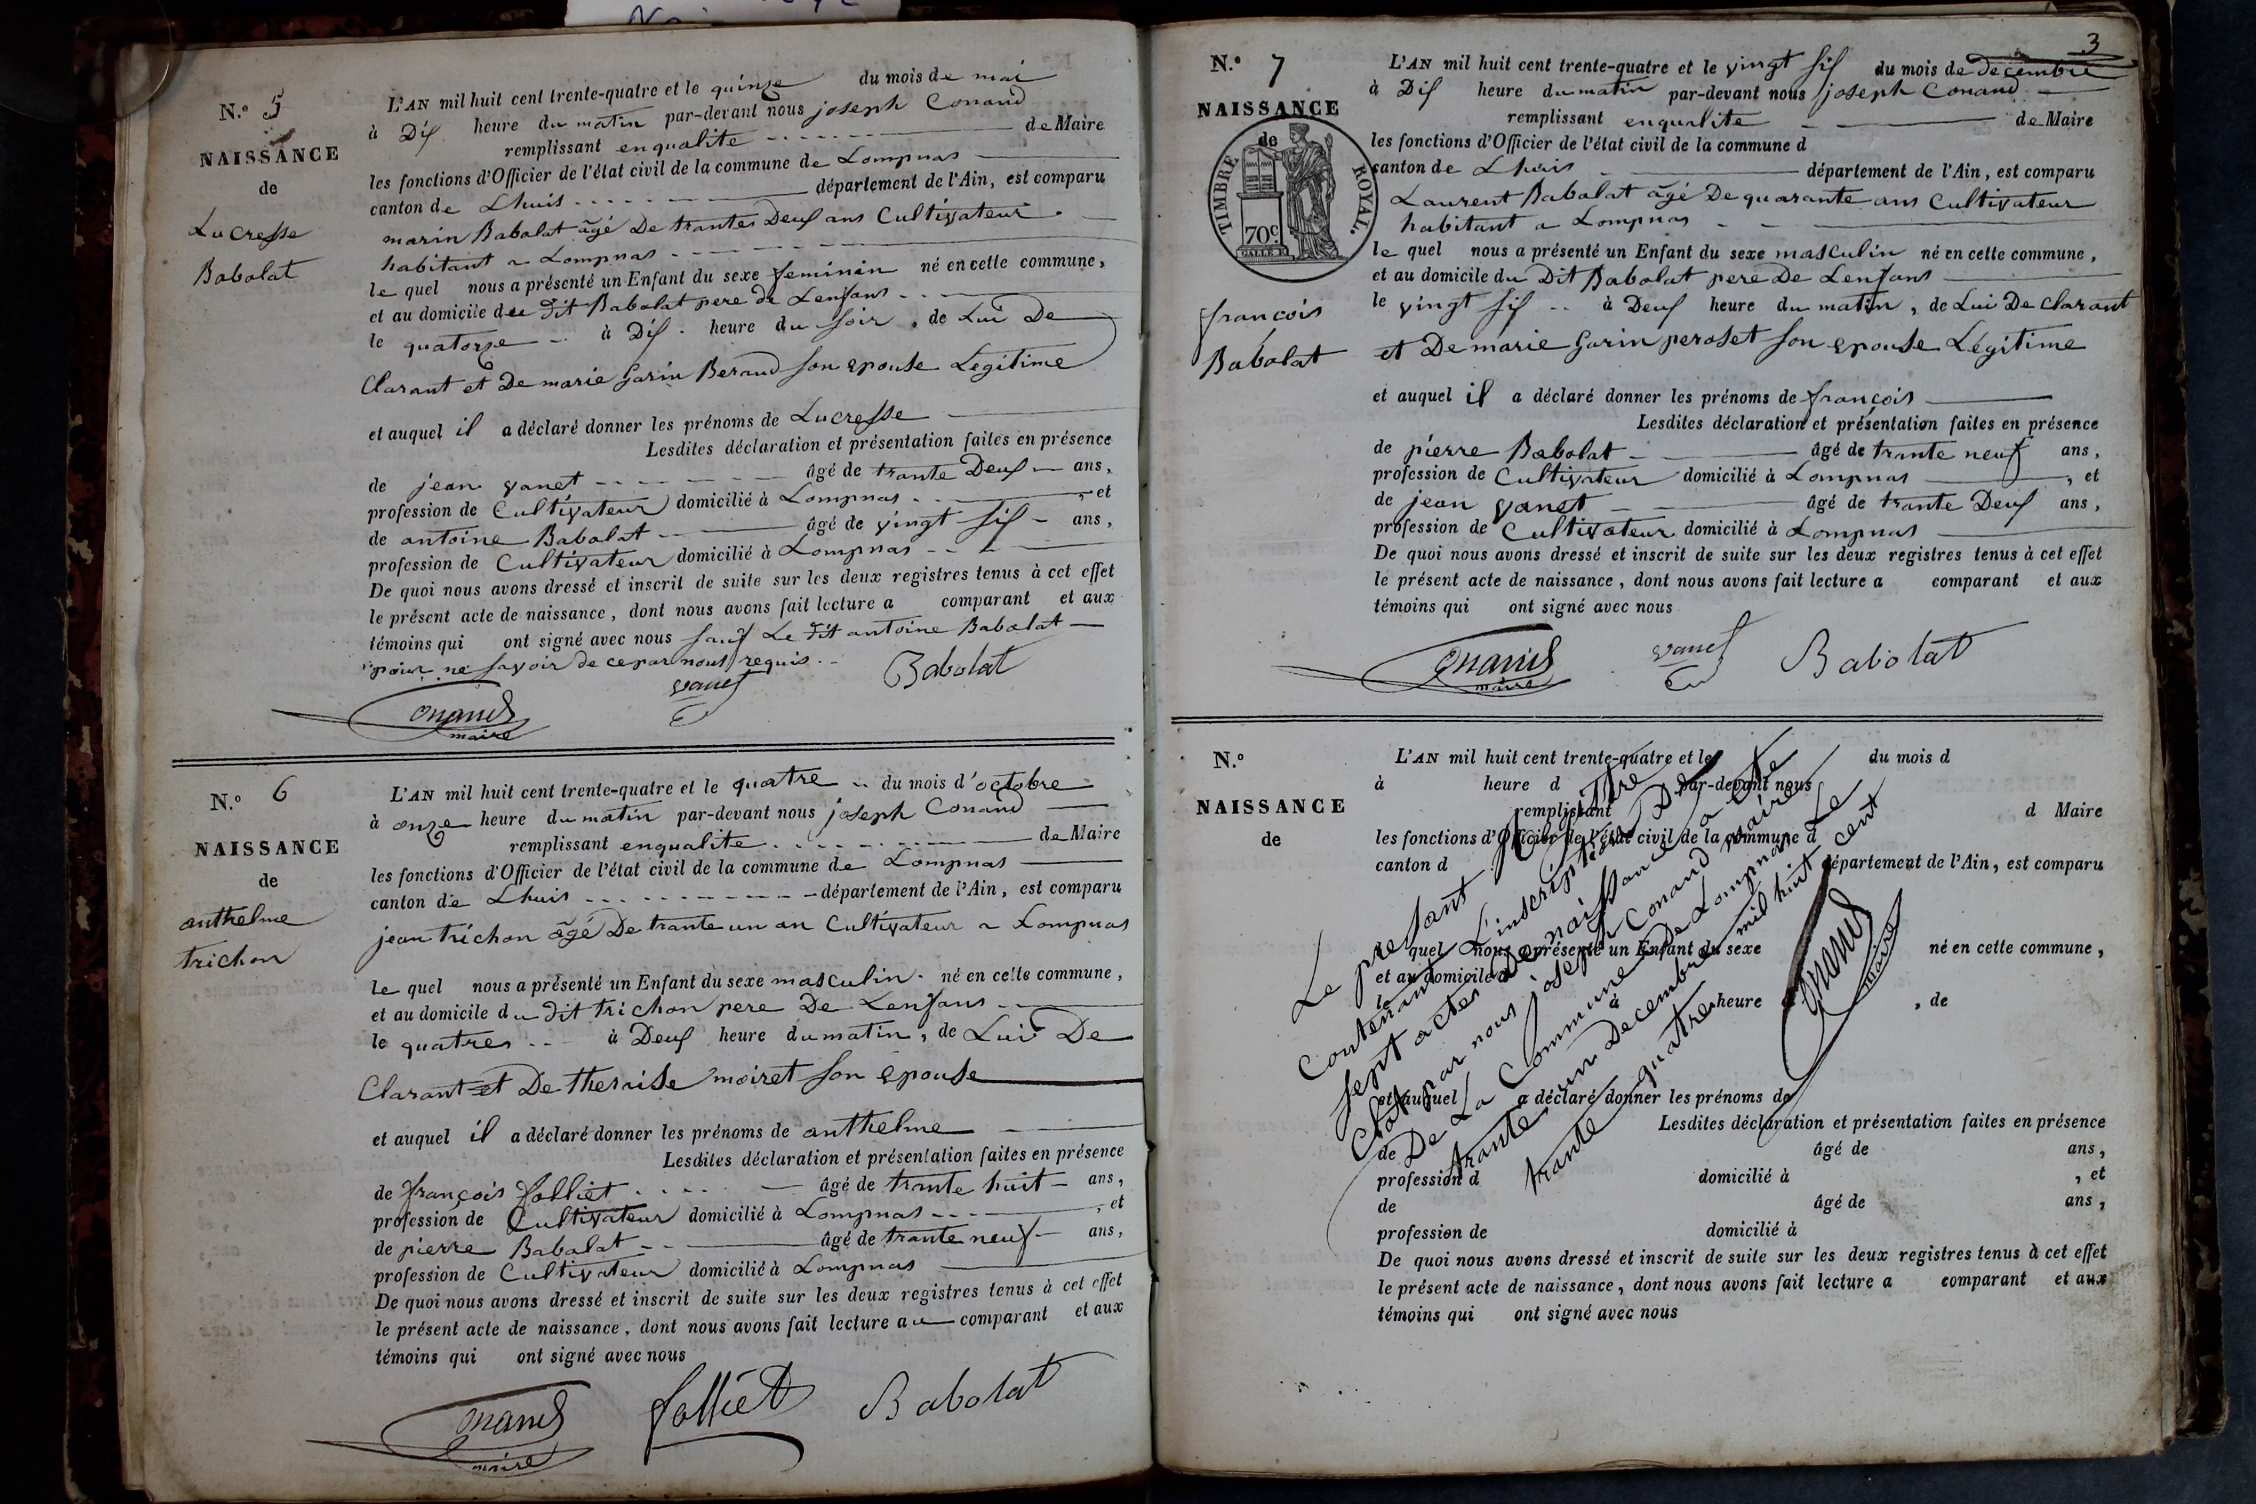 N.º 5
NAISSANCE
de
Lucresse
Babolat
L'AN mil huit cent trente-quatre et le quinze du mois de mai
à Dix heure du matin par-devant nous joseph Conand
remplissant enqualite de Maire
les fonctions d'Officier de l'état civil de la commune de Lompnas
canton de Lhuis département de l'Ain, est comparu
marin Babolat âgé De trantes Deux ans Cultivateur
habitant a Lompnas
le quel nous a présenté un Enfant du sexe feminin né en cette commune,
et au domicile du dit Babolat pere de Lenfans
le quatorze à Dix heure du soir, de Lui De
Clarant et De marie Garin Beraud son epouse Legitime
et auquel il a déclaré donner les prénoms de Lucresse
Lesdites déclaration et présentation faites en présence
de jean vanet âgé de trante Deux ans,
profession de Cultivateur domicilié à Lompnas, et
de antoine Babolat âgé de vingt six ans,
profession de Cultivateur domicilié à Lompnas
De quoi nous avons dressé et inscrit de suite sur les deux registres tenus à cet effet
le présent acte de naissance, dont nous avons fait lecture a comparant et aux
témoins qui ont signé avec nous sauf Le dit antoine Babolat
pour ne savoir de ce par nous requis
vanet Babolat
Conand
maire
N.º 6
NAISSANCE
de
anthelme
trichon
L'AN mil huit cent trente-quatre et le quatre du mois d'octobre
à onze heure du matin par-devant nous joseph Conand
remplissant enqualite de Maire
les fonctions d'Officier de l'état civil de la commune de Lompnas
canton de Lhuis département de l'Ain, est comparu
jean trichon âgé De trante un an Cultivateur a Lompnas
le quel nous a présenté un Enfant du sexe masculin né en cette commune,
et au domicile du dit trichon pere De Lenfans
le quatres à Deux heure du matin, de Lui De
Clarant et De theraise moiret son epouse
et auquel il a déclaré donner les prénoms de anthelme
Lesdites déclaration et présentation faites en présence
de françois folliet âgé de trante huit ans,
profession de Cultivateur domicilié à Lompnas, et
de pierre Babolat âgé de trante neuf ans,
profession de Cultivateur domicilié à Lompnas
De quoi nous avons dressé et inscrit de suite sur les deux registres tenus à cet effet
le présent acte de naissance, dont nous avons fait lecture au comparant et aux
témoins qui ont signé avec nous
Conand folliet Babolat
maire
3
N.º 7
NAISSANCE
de
TIMBRE ROYAL.
70c
françois
Babolat
L'AN mil huit cent trente-quatre et le vingt six du mois de decembre
à Dix heure du matin par-devant nous joseph Conand
remplissant enqualite de Maire
les fonctions d'Officier de l'état civil de la commune d
canton de Lhuis département de l'Ain, est comparu
Laurent Babolat âgé De quarante ans Cultivateur
habitant a Lompnas
le quel nous a présenté un Enfant du sexe masculin né en cette commune,
et au domicile du Dit Babolat pere De Lenfans
le vingt six à Deux heure du matin, de Lui De Clarant
et De marie Garin peroset son epouse Légitime
et auquel il a déclaré donner les prénoms de françois
Lesdites déclaration et présentation faites en présence
de pierre Babolat âgé de trante neuf ans,
profession de Cultivateur domicilié à Lompnas, et
de jean vanet âgé de trante Deux ans,
profession de Cultivateur domicilié à Lompnas
De quoi nous avons dressé et inscrit de suite sur les deux registres tenus à cet effet
le présent acte de naissance, dont nous avons fait lecture a comparant et aux
témoins qui ont signé avec nous
Conand vanet Babolat
maire
N.º
NAISSANCE
de
L'AN mil huit cent trente-quatre et le du mois d
à heure d par-devant nous
remplissant d Maire
les fonctions d'Officier de l'état civil de la commune d
canton d département de l'Ain, est comparu
quel nous a présenté un Enfant du sexe né en cette commune,
et au domicile d
le à heure d, de
et auquel a déclaré donner les prénoms de
Lesdites déclaration et présentation faites en présence
de âgé de ans,
profession d domicilié à, et
de âgé de ans,
profession de domicilié à
De quoi nous avons dressé et inscrit de suite sur les deux registres tenus à cet effet
le présent acte de naissance, dont nous avons fait lecture a comparant et aux
témoins qui ont signé avec nous
Le presant Registre
Contenant L'inscription De
sept actes De naissance a ete
Clos par nous joseph Conand maire
De La Commune De Lompnas Le
trante un Decembre mil huit cent
trante quatre
Conand
maire